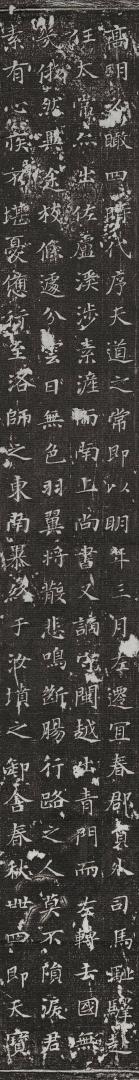 高明以瞰四時代序天道之常即以明年三月左遷宜春郡員外司馬驰驛赴
任太常亦出佐盧溪涉素滻而南上尚書又謫守閩越出青門而左轉去國無
幾俄然異途枝條遽分雲日無色羽翼將散悲鳴斷腸行路之人莫不隕淚君
素有心疾不堪憂憊行至洛師之東南暴終于汝墳之郵舍春秋卌四即天寶